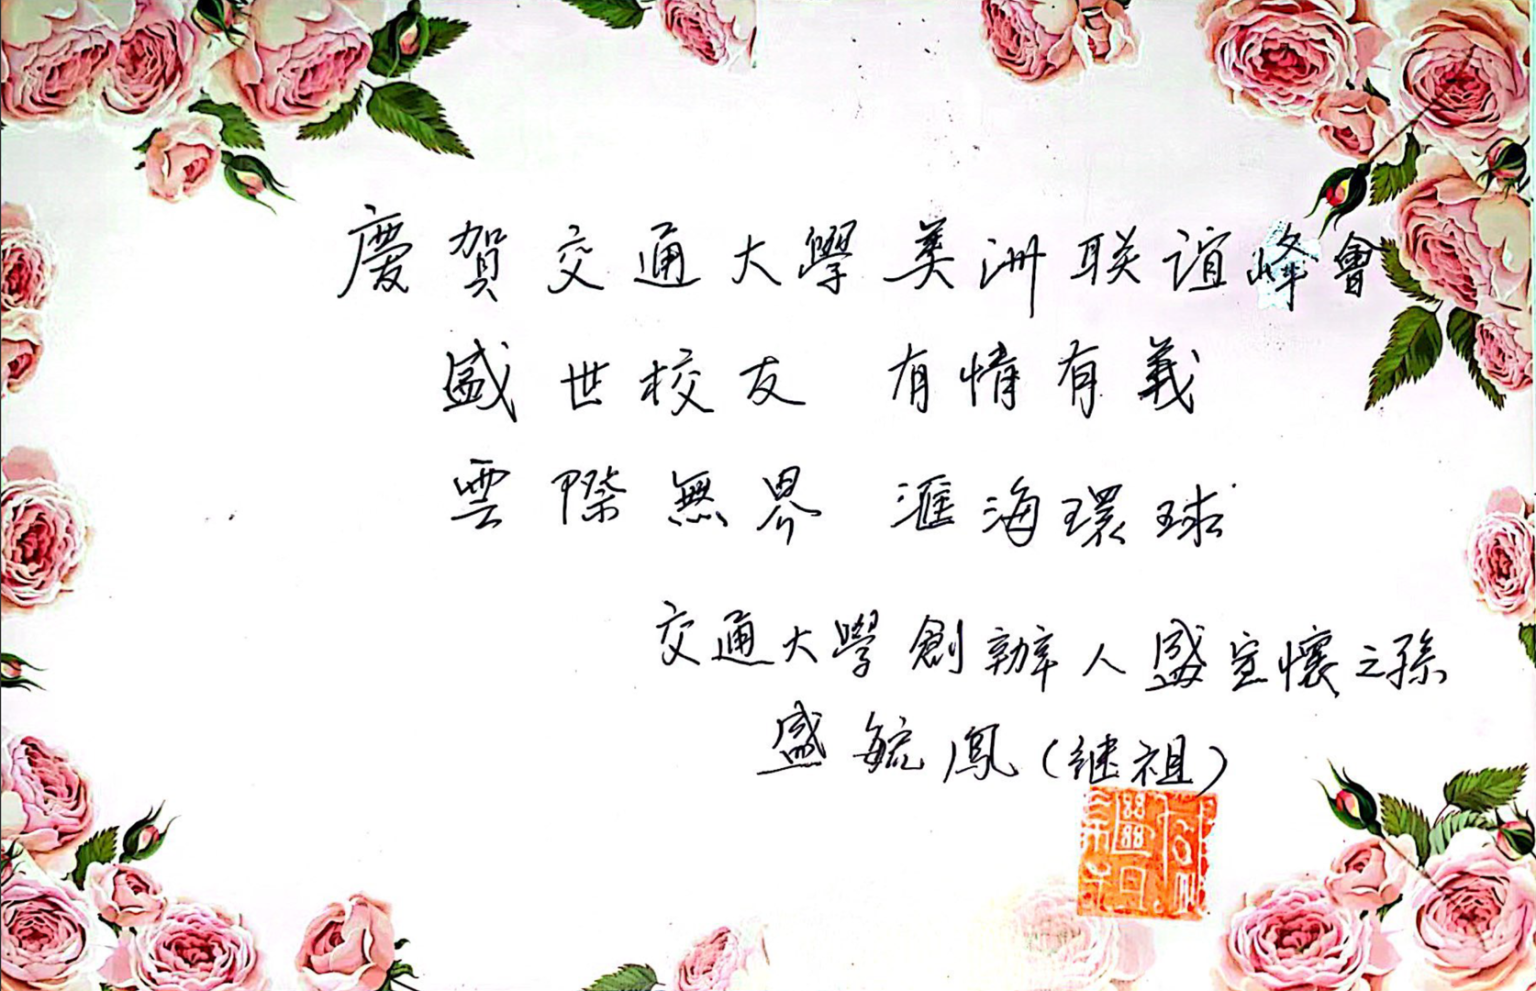 慶賀交通大學美洲联谊峰會
盛世校友 有情有義
雲際無界 滙海環球
交通大學創辦人盛宣懷之孫
盛毓鳳(继祖)